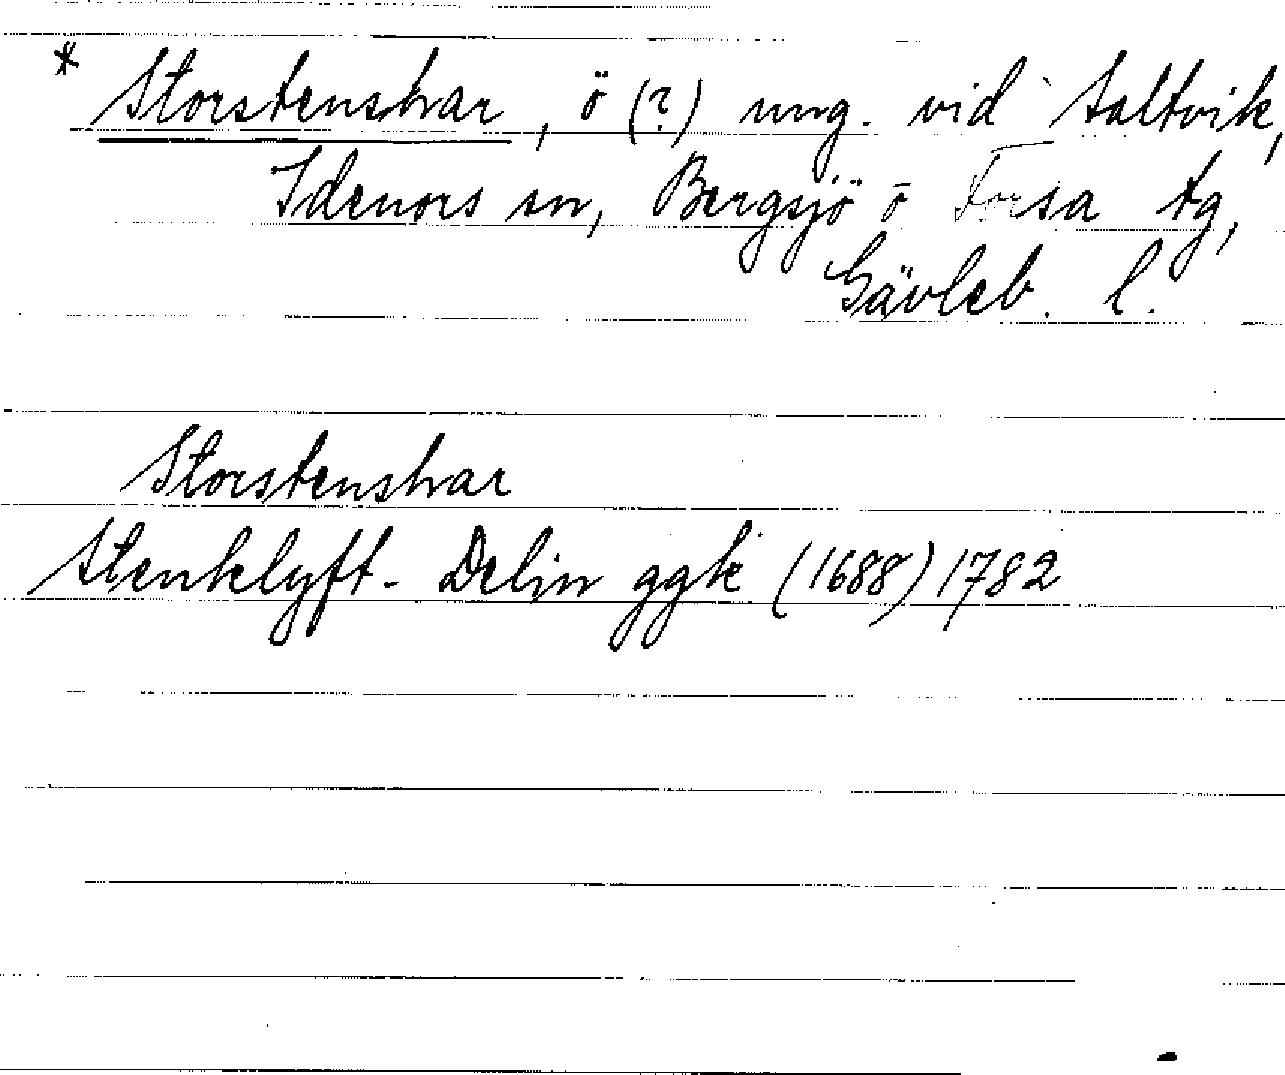 * Storstenshar, ö (?) ung. vid Saltvik,
Idenors sn, Bergsjö o Forsa tg,
Gävleb. l.
Storstenshar
Stenklyft- Delin ggk (1688) 1782